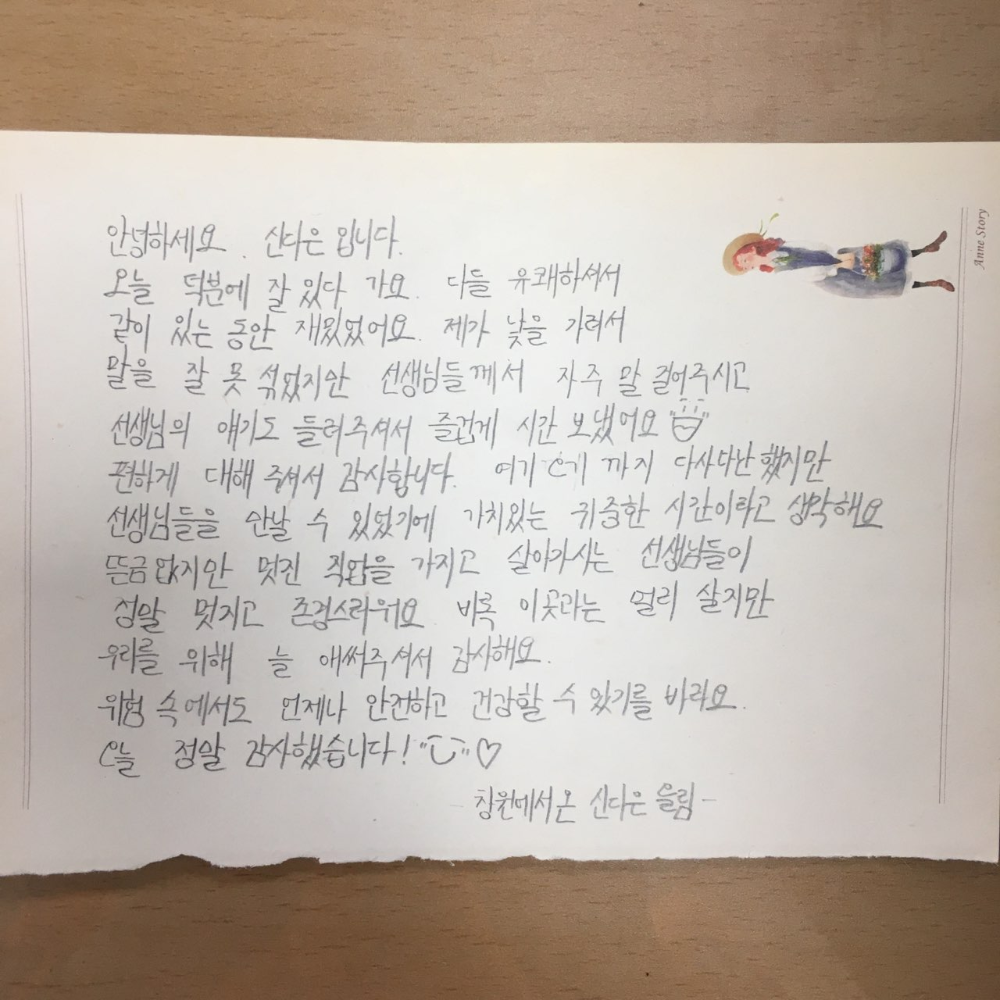 안녕하세요. 신다은 입니다.
오늘 덕분에 잘 있다 가요. 다들 유쾌하셔서
같이 있는 동안 재밌었어요. 제가 낯을 가려서
말을 잘 못 섞었지만 선생님들께서 자주 말 걸어주시고
선생님의 얘기도 들려주셔서 즐겁게 시간 보냈어요
편하게 대해 주셔서 감사합니다. 여기 오기 까지 다사다난했지만
선생님들을 만날 수 있었기에 가치있는 귀중한 시간이라고 생각해요
뜬금없지만 멋진 직업을 가지고 살아가시는 선생님들이
정말 멋지고 존경스러워요 비록 이곳과는 멀리 살지만
우리를 위해 늘 애써주셔서 감사해요.
위험 속에서도 언제나 안전하고 건강할 수 있기를 바라요.
오늘 정말 감사했습니다! "ت" ♡
- 창원에서 온 신다은 올림 -
Anne Story